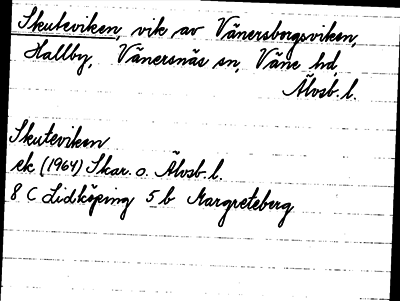 Skuteviken, vik av Vänersborgsviken,
Hallby, Vänersnäs sn, Väne hd,
Älvsb. l.
Skuteviken
ek (1964) Skar. o. Älvsb. l.
8 C Lidköping 5 b Margreteberg